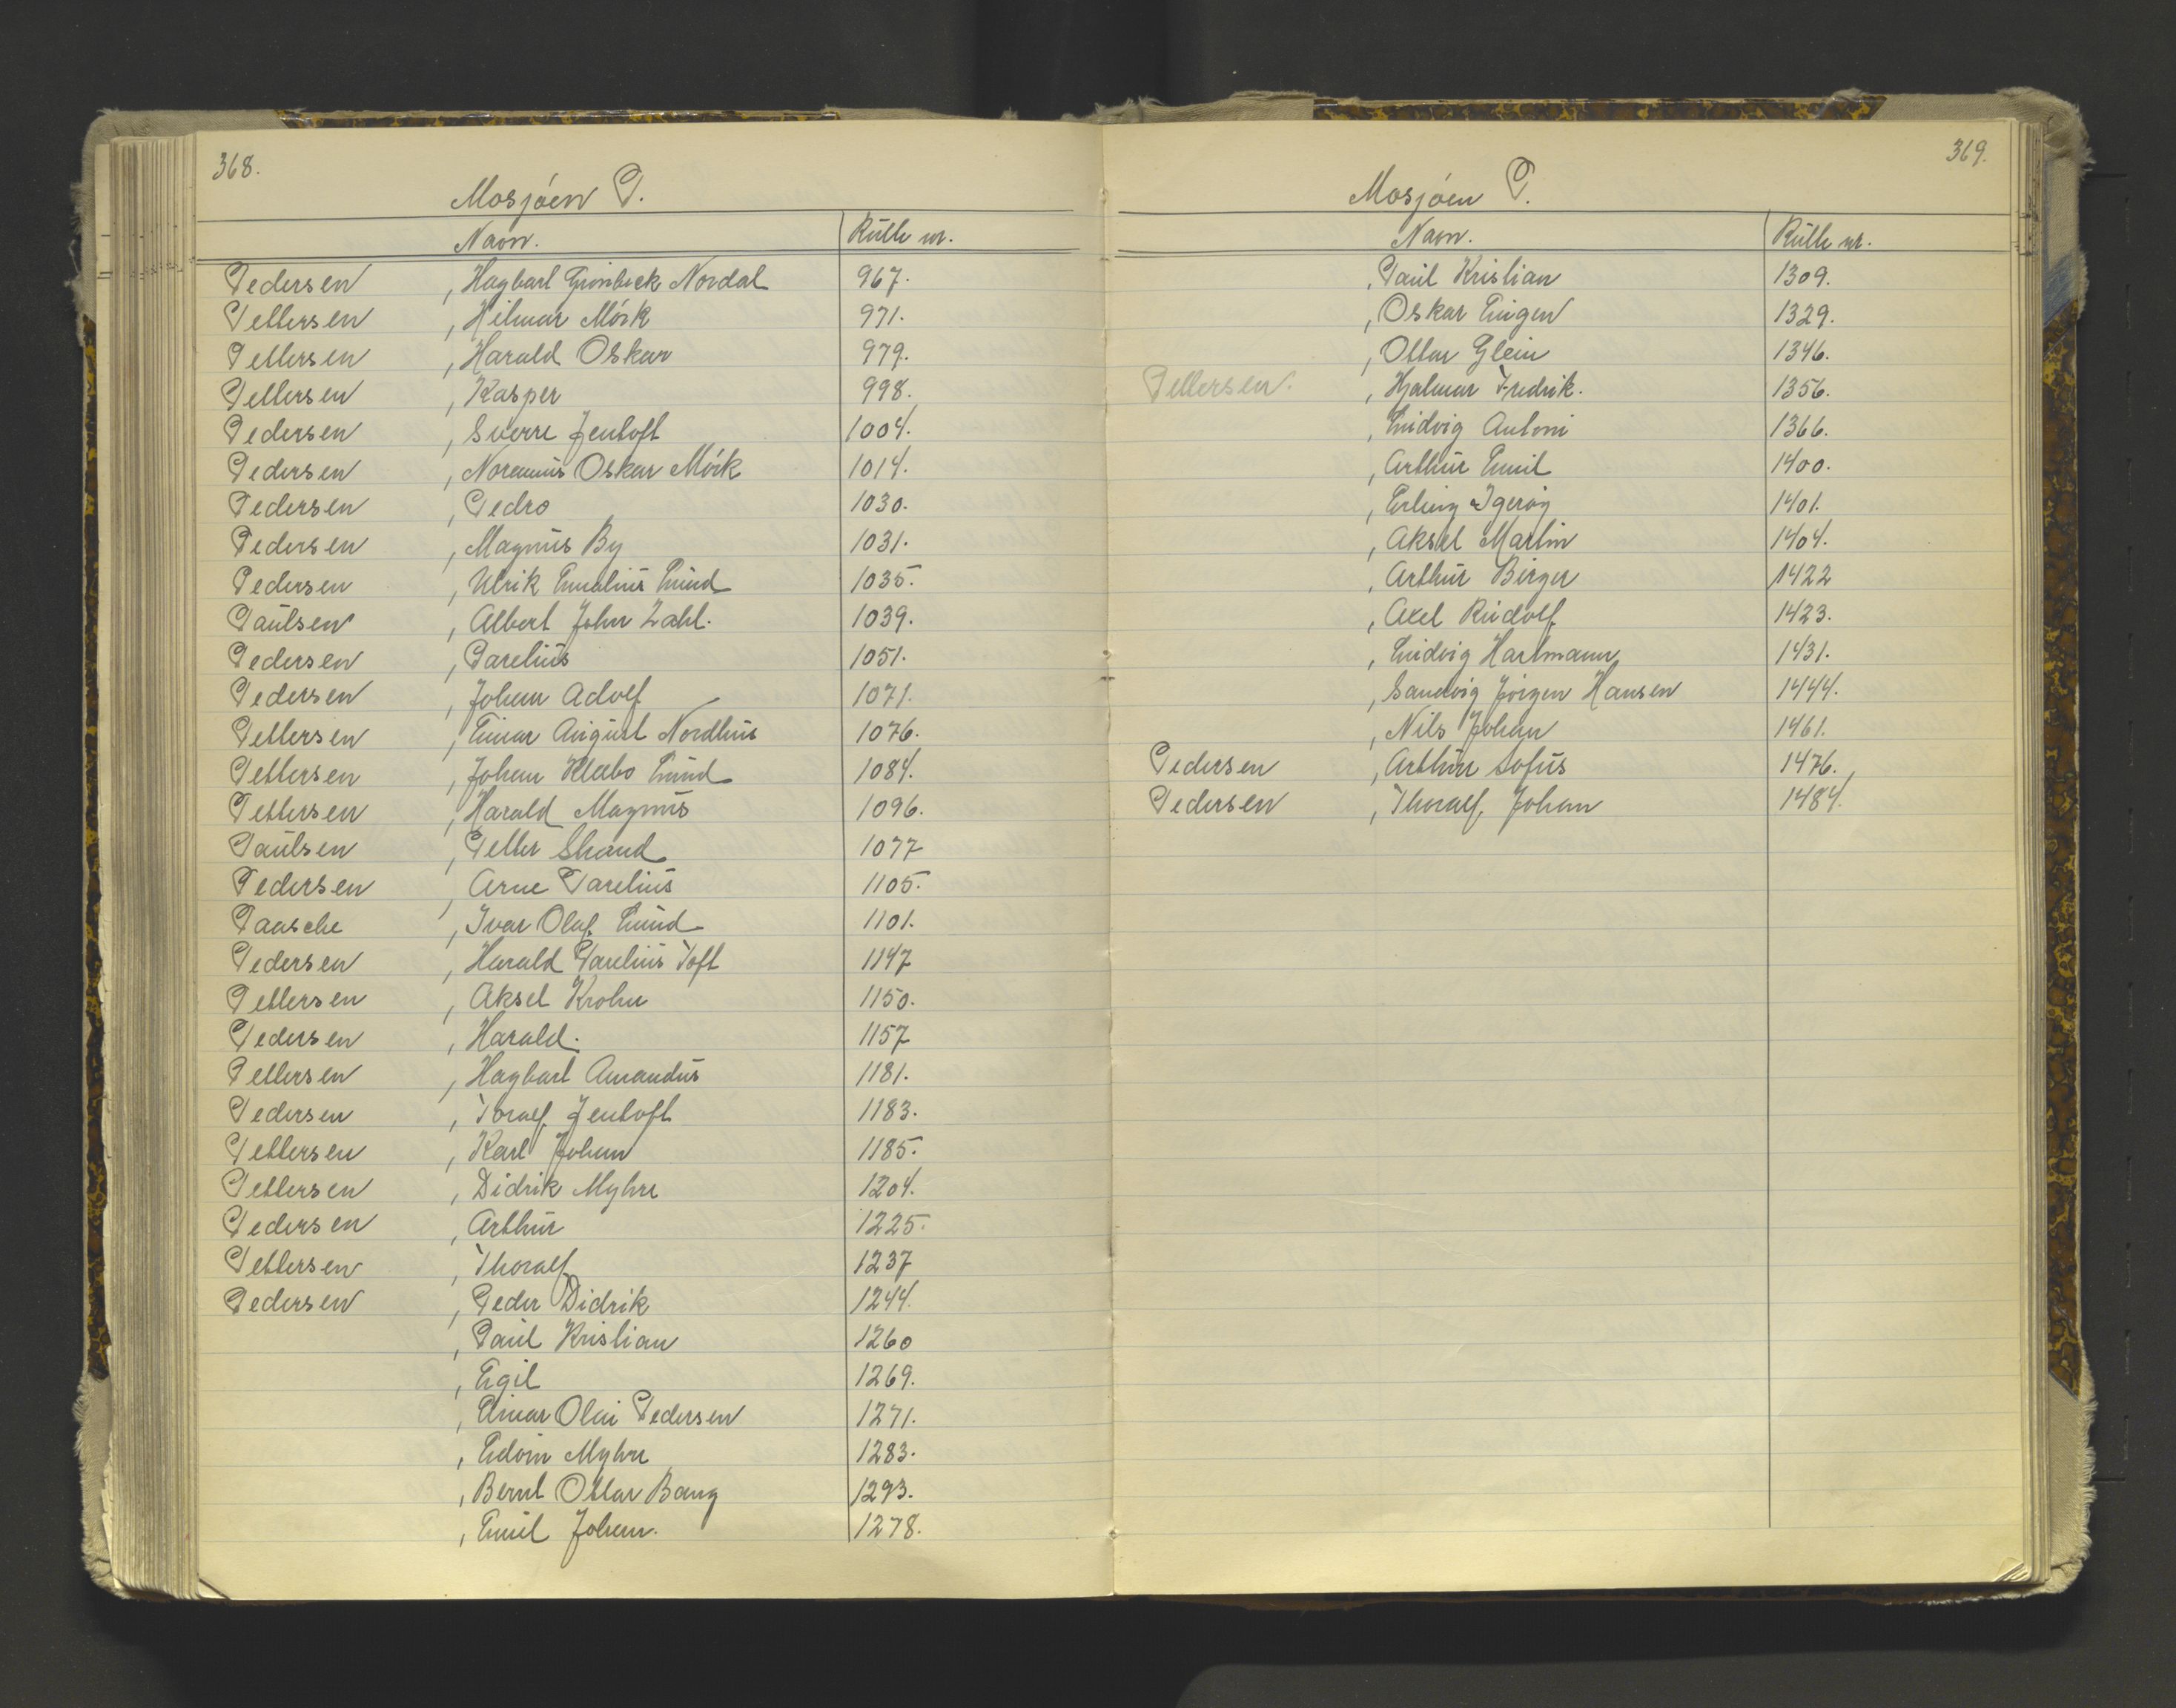 368.
Mosjöen P.
Navn. Rulle nr.
Pedersen , Hagbart Grönbeck Nordal 967.
Pettersen , Hilmar Mörk 971.
Pettersen , Harald Oskar 979.
Pettersen , Kasper 998.
Pedersen , Sverre Jentoft 1004.
Pedersen , Noranius Oskar Mörk 1014.
Pedersen , Pedro 1030.
Pedersen , Magnus By 1031.
Pedersen , Ulrik Lund 1035.
Paulsen , Albert John Zahl. 1039.
Pedersen , Parelius 1051.
Pedersen , Johan Adolf 1071.
Pettersen , Einar August Nordhus 1076.
Pettersen , Johan Klæbo Lund 1084.
Pettersen , Harald Magnus 1096.
Paulsen , Petter Strand 1077
Pedersen , Arne Parelius 1105.
Paasche , Ivar Olaf Lund 1101.
Pedersen , Harald Parelius Toft 1147
Pettersen , Aksel Krohn 1150.
Pedersen , Harald. 1157
Pettersen , Hagbart Amandus 1181.
Pedersen , Toralf Jentoft 1183.
Pettersen , Karl Johan 1185.
Pettersen , Didrik Myhre 1204.
Pedersen , Arthur 1225.
Pettersen , Thoralf 1237
Pedersen , Peder Didrik 1244.
, Paul Kristian 1260
, Egil 1269.
, Einar Olai Pedersen 1271.
, Edvin Myhre 1283.
, Bernt Ottar Bang 1293.
, Emil Johan. 1278.
369.
Mosjöen P.
Navn. Rulle nr.
, Paul Kristian 1309.
, Oskar Eugen 1329.
, Ottar Glein 1346.
Pettersen. , Hjalmar Fredrik. 1356.
, Ludvig Antoni 1366.
, Arthur Emil 1400.
, Erling Igeröy 1401.
, Aksel Martin 1404.
, Arthur Birger 1422
, Axel Rudolf 1423.
, Ludvig Hartmann 1431.
, Sandvig Jörgen Hansen 1444.
, Nils Johan 1461.
Pedersen , Arthur Sofus 1476.
Pedersen , Thoralf Johan 1484.